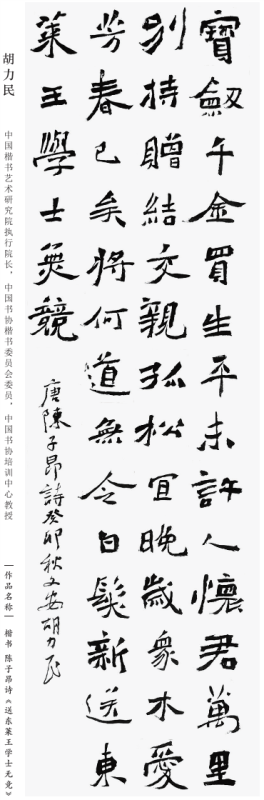 寶劔千金買生平未許人懷君萬里
别持贈結交親孤松宜晚歲衆木愛
芳春已矣將何道無令白髮新送東
萊王學士無競
唐陳子昂詩癸卯秋文安胡力民
胡力民
中国楷书艺术研究院执行院长，中国书协楷书委员会委员，中国书协培训中心教授
|作品名称| 楷书 陈子昂诗《送东莱王学士无竞》